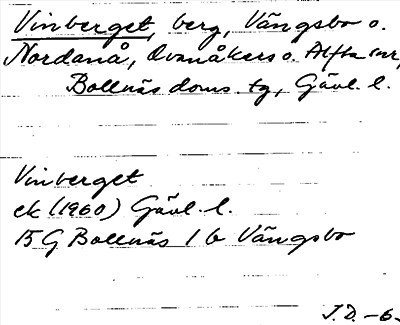 Vinberget, berg, Vängsbo o.
Nordanå, Ovanåkers o. Alfta snr,
Bollnäs doms. tg, Gävl. l.
Vinberget
ek (1960) Gävl. l.
15 G Bollnäs 1 b Vängsbo
J.D. -6-